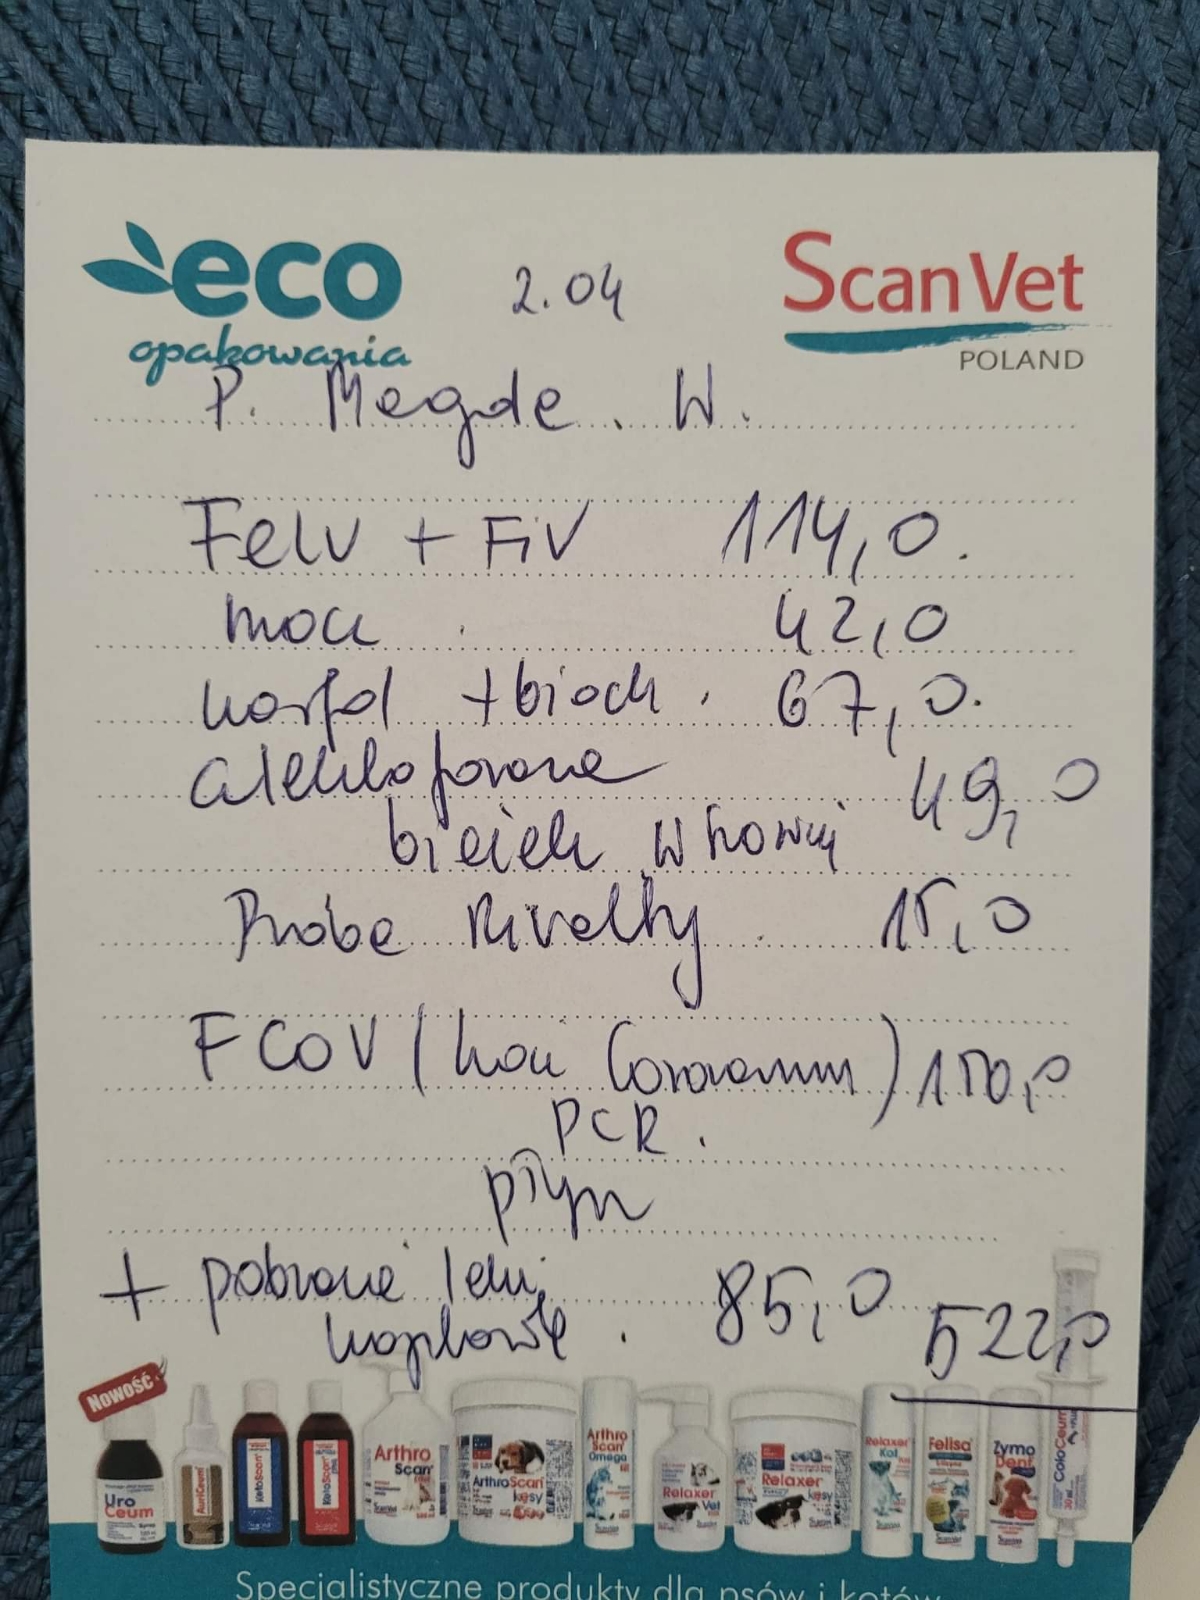 eco
opakowania
2.04
ScanVet
POLAND
P. Magda. W.
Felv + FiV 114,0.
mocz 42,0
morfol + bioch. 67,0.
elektroforeza 49,0
białek w krowi
Próba Rivalty 15,0
FCoV (koci Coronawirus) 150,0
PCR.
płyn
+ pobranie leki 85,0
kroplówk. 522,0
NOWOŚĆ
Uro
Ceum
AuriCeum
KetoScan
KetoScan
Arthro
Scan
ArthroScan
kęsy
Arthro
Scan
Omega
Relaxer
Vet
Relaxer
kęsy
Relaxer
Kot
Felisa
Zymo
Dent
ColoCeum
Specjalistyczne produkty dla psów i kotów